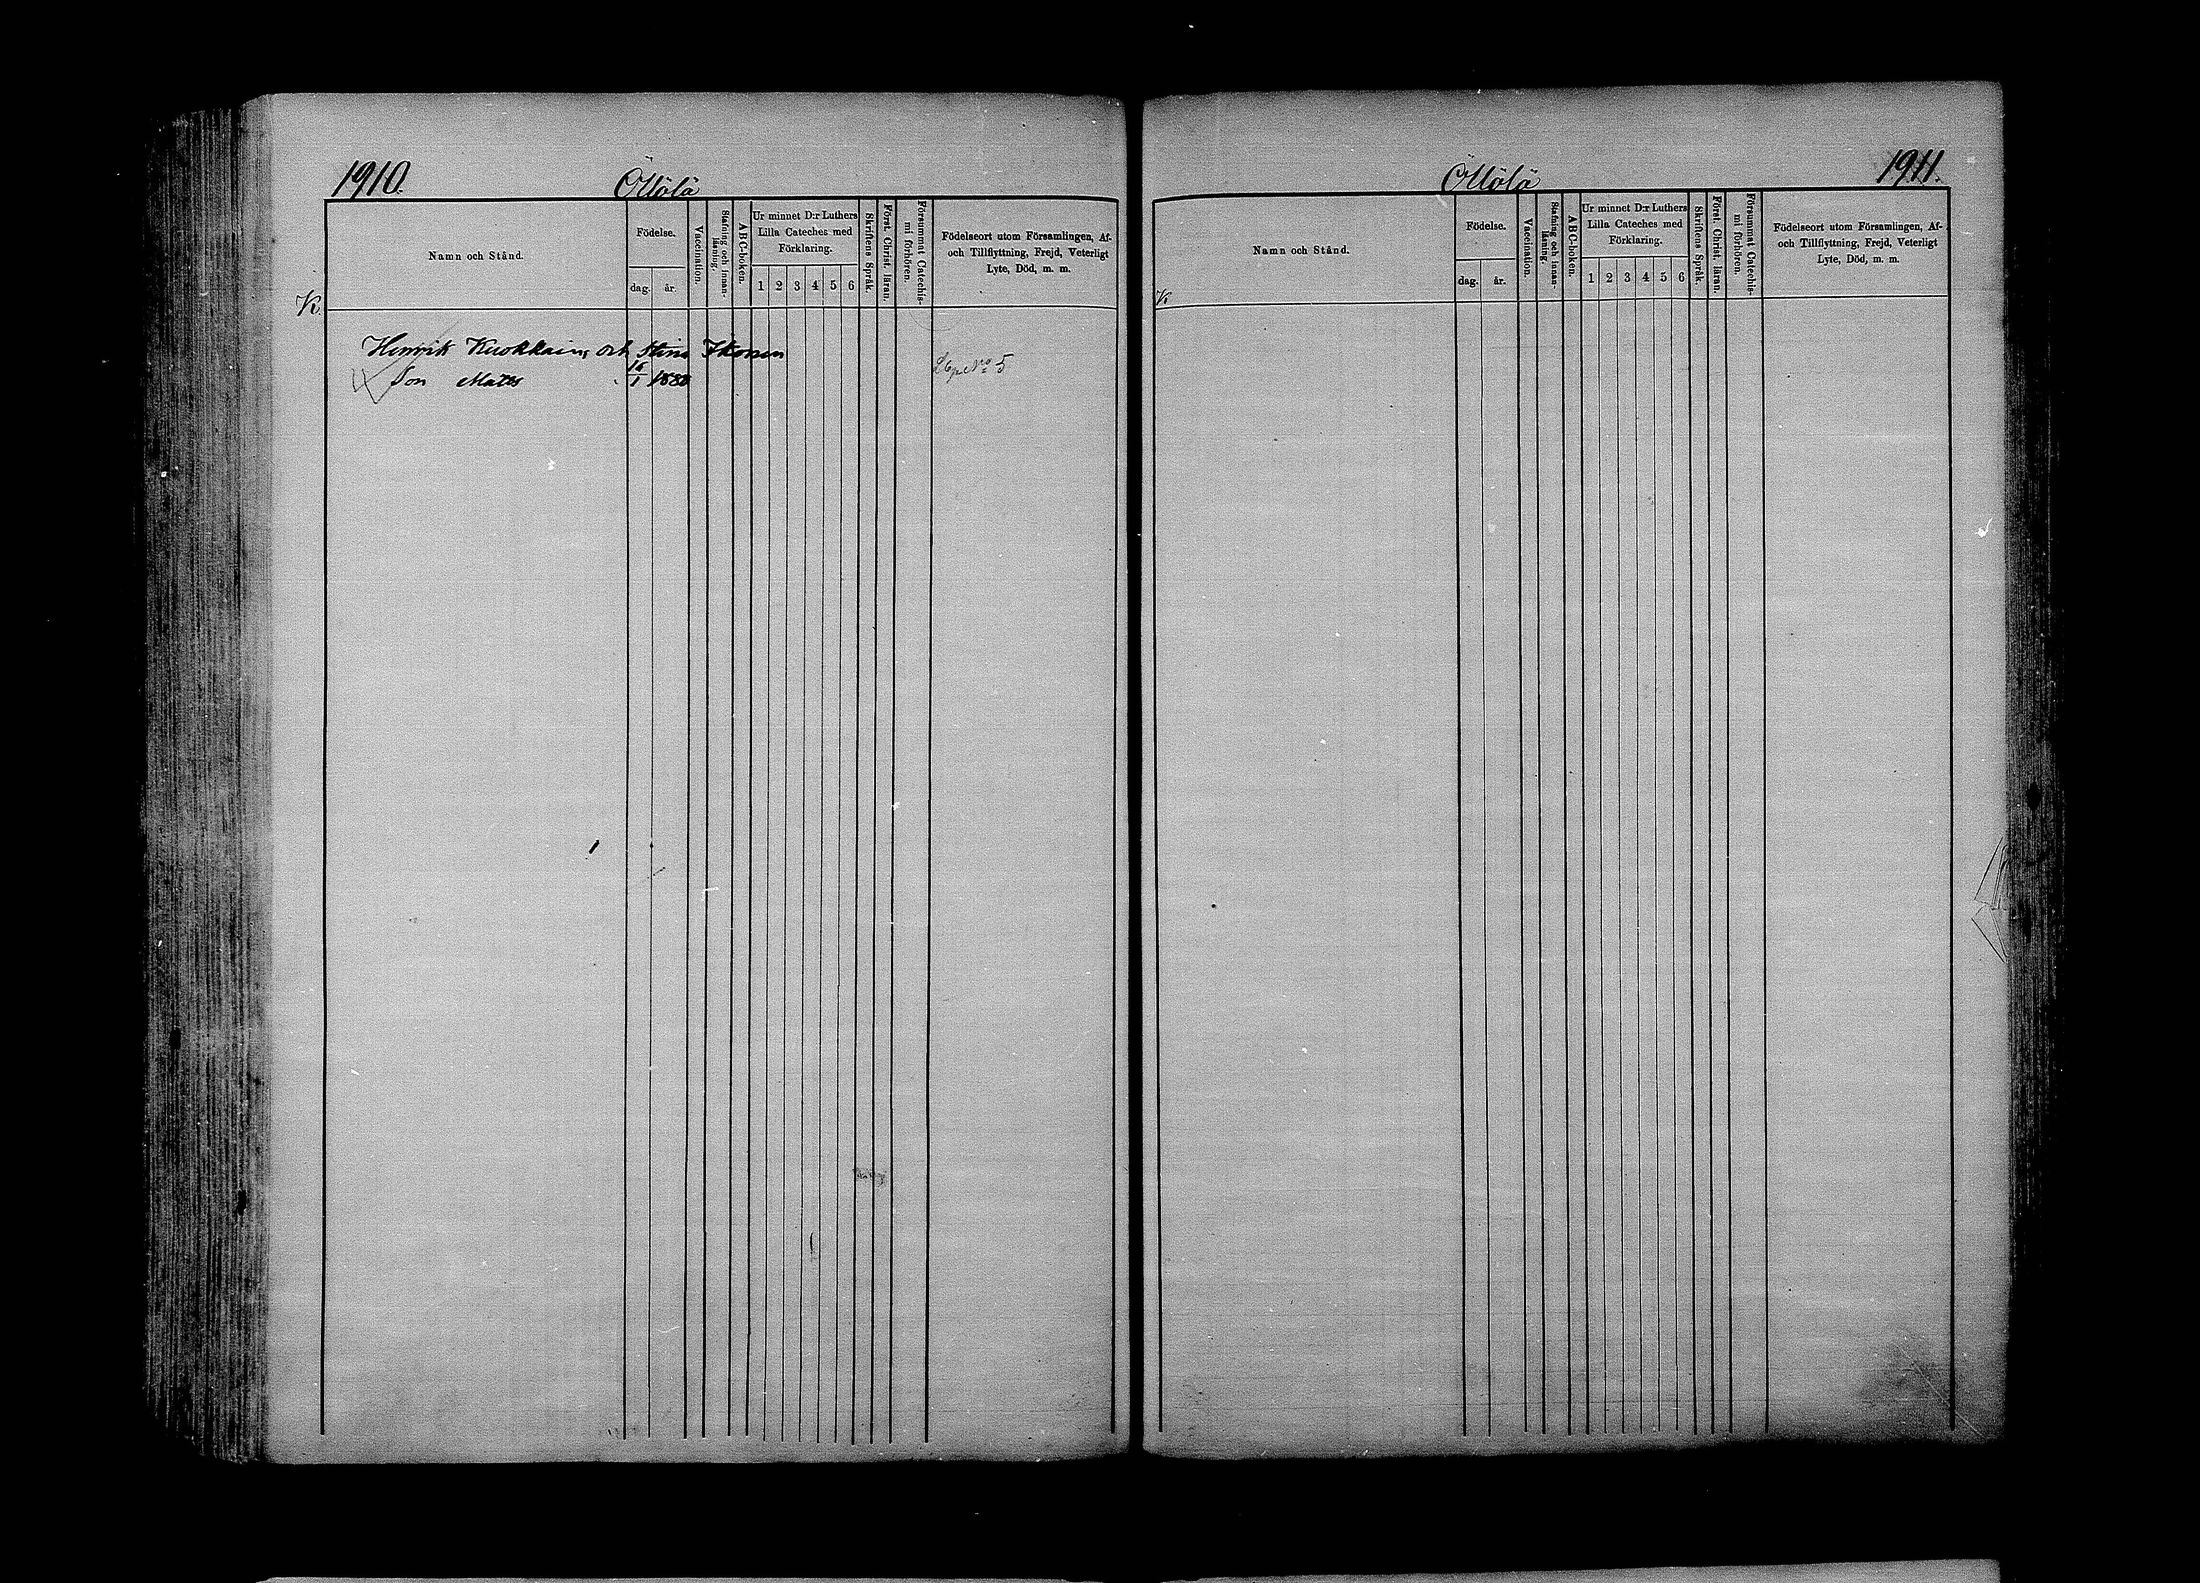 1910.
Öllölä
Namn och Stånd.
Födelse.
dag.
år.
Vaccination.
Stafning och innan-
läsning.
ABC-boken.
Ur minnet D:r Luthers
Lilla Cateches med
Förklaring.
1 2 3 4 5 6
Skriftens Språk.
Först. Christ. läran.
Försummat Catechis-
mi förhören.
Födelseort utom Församlingen, Af-
och Tillflyttning, Frejd, Veterligt
Lyte, Död, m. m.
K.
Henrik Kuokkains och Stina Ikonen
Son Matts 1880
No 5
1911.
Öllölä
Namn och Stånd.
Födelse.
dag.
år.
Vaccination.
Stafning och innan-
läsning.
ABC-boken.
Ur minnet D:r Luthers
Lilla Cateches med
Förklaring.
1 2 3 4 5 6
Skriftens Språk.
Först. Christ. läran.
Försummat Catechis-
mi förhören.
Födelseort utom Församlingen, Af-
och Tillflyttning, Frejd, Veterligt
Lyte, Död, m. m.
K.